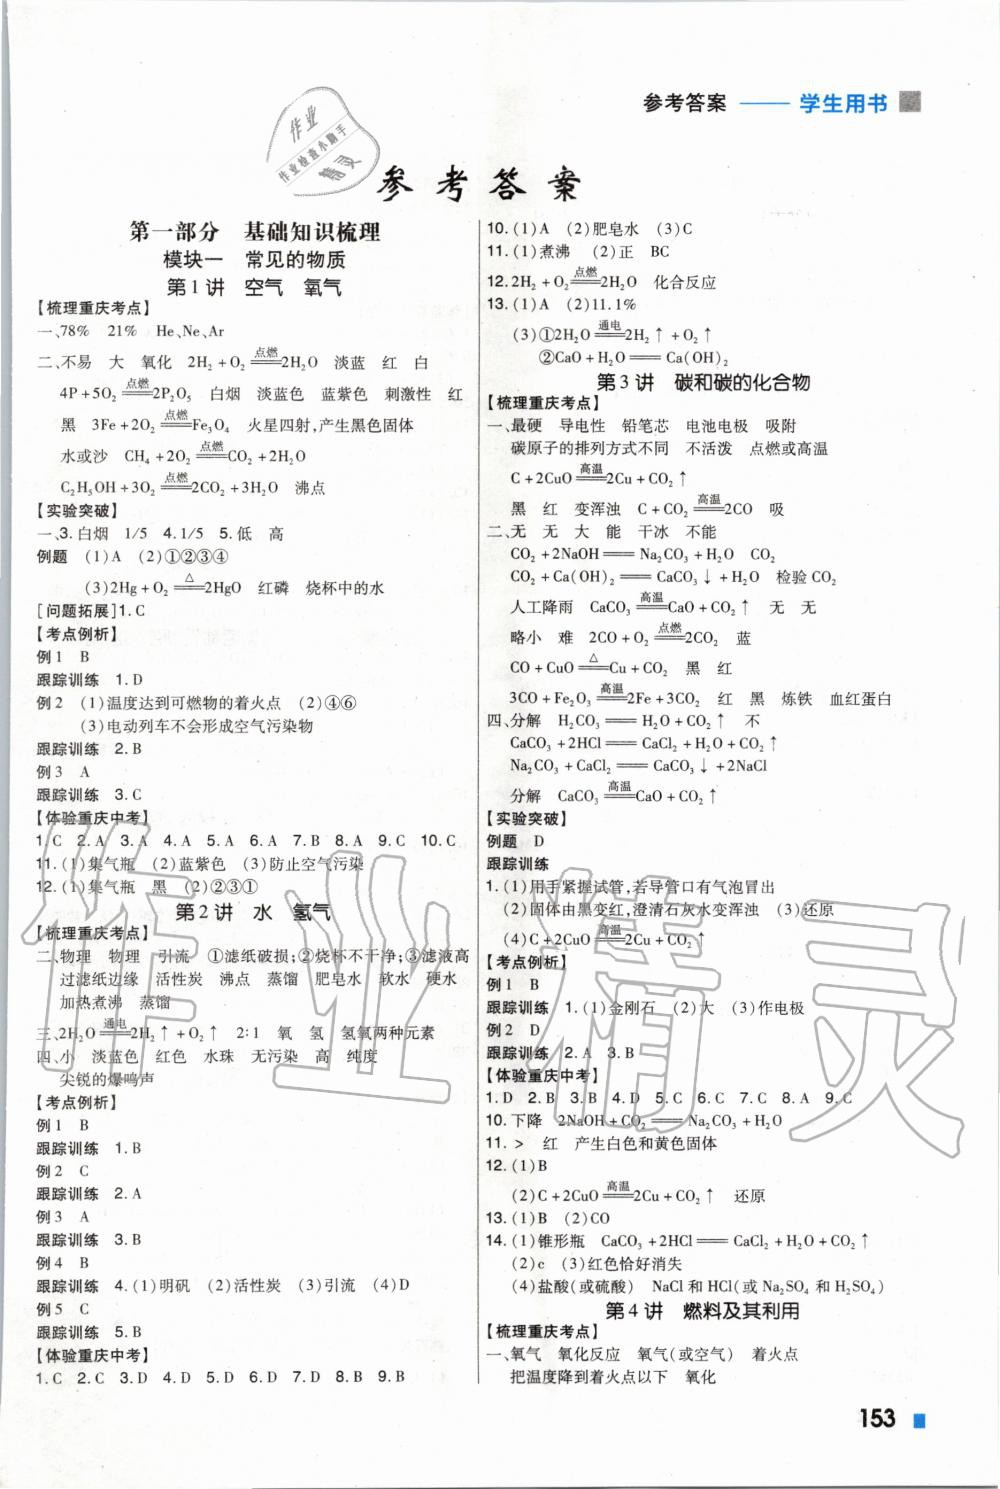 参考答案 —— 学生用书
作业
作业检查小助手
精灵
参考答案
第一部分 基础知识梳理
模块一 常见的物质
第1讲 空气 氧气
【梳理重庆考点】
一、78% 21% He、Ne、Ar
二、不易 大 氧化 2H₂+O₂=点燃=2H₂O 淡蓝 红 白
4P+5O₂=点燃=2P₂O₅ 白烟 淡蓝色 蓝紫色 刺激性 红
黑 3Fe+2O₂=点燃=Fe₃O₄ 火星四射,产生黑色固体
水或沙 CH₄+2O₂=点燃=CO₂+2H₂O
C₂H₅OH+3O₂=点燃=2CO₂+3H₂O 沸点
【实验突破】
一、3.白烟 1/5 4.1/5 5.低 高
例题 (1)A (2)①②③④
(3)2Hg+O₂=△=2HgO 红磷 烧杯中的水
[问题拓展]1.C
【考点例析】
例1 B
跟踪训练 1.D
例2 (1)温度达到可燃物的着火点 (2)④⑥
(3)电动列车不会形成空气污染物
跟踪训练 2.B
例3 A
跟踪训练 3.C
【体验重庆中考】
1.C 2.A 3.A 4.A 5.A 6.A 7.B 8.A 9.C 10.C
11.(1)集气瓶 (2)蓝紫色 (3)防止空气污染
12.(1)集气瓶 黑 (2)②③①
第2讲 水 氢气
【梳理重庆考点】
二、物理 物理 引流 ①滤纸破损;②烧杯不干净;③滤液高
过滤纸边缘 活性炭 沸点 蒸馏 肥皂水 软水 硬水
加热煮沸 蒸馏
三、2H₂O=通电=2H₂↑+O₂↑ 2∶1 氧 氢 氢氧两种元素
四、小 淡蓝色 红色 水珠 无污染 高 纯度
尖锐的爆鸣声
【考点例析】
例1 B
跟踪训练 1.B
例2 C
跟踪训练 2.A
例3 A
跟踪训练 3.B
例4 B
跟踪训练 4.(1)明矾 (2)活性炭 (3)引流 (4)D
例5 C
跟踪训练 5.B
【体验重庆中考】
1.C 2.C 3.D 4.D 5.D 6.D 7.D 8.B 9.B
10.(1)A (2)肥皂水 (3)C
11.(1)煮沸 (2)正 BC
12.2H₂+O₂=点燃=2H₂O 化合反应
13.(1)A (2)11.1%
(3)①2H₂O=通电=2H₂↑+O₂↑
②CaO+H₂O══Ca(OH)₂
第3讲 碳和碳的化合物
【梳理重庆考点】
一、最硬 导电性 铅笔芯 电池电极 吸附
碳原子的排列方式不同 不活泼 点燃或高温
C+2CuO=高温=2Cu+CO₂↑
黑 红 变浑浊 C+CO₂=高温=2CO 吸
二、无 无 大 能 干冰 不能
CO₂+2NaOH══Na₂CO₃+H₂O CO₂
CO₂+Ca(OH)₂══CaCO₃↓+H₂O 检验CO₂
人工降雨 CaCO₃=高温=CaO+CO₂↑ 无 无
略小 难 2CO+O₂=点燃=2CO₂ 蓝
CO+CuO=△=Cu+CO₂ 黑 红
3CO+Fe₂O₃=高温=2Fe+3CO₂ 红 黑 炼铁 血红蛋白
四、分解 H₂CO₃══H₂O+CO₂↑ 不
CaCO₃+2HCl══CaCl₂+H₂O+CO₂↑
Na₂CO₃+CaCl₂══CaCO₃↓+2NaCl
分解 CaCO₃=高温=CaO+CO₂↑
【实验突破】
例题 D
跟踪训练
1.(1)用手紧握试管,若导管口有气泡冒出
(2)固体由黑变红,澄清石灰水变浑浊 (3)还原
(4)C+2CuO=高温=2Cu+CO₂↑
【考点例析】
例1 B
跟踪训练 1.(1)金刚石 (2)大 (3)作电极
例2 D
跟踪训练 2.A 3.B
【体验重庆中考】
1.D 2.B 3.B 4.D 5.C 6.C 7.C 8.A 9.C
10.下降 2NaOH+CO₂══Na₂CO₃+H₂O
11.> 红 产生白色和黄色固体
12.(1)B
(2)C+2CuO=高温=2Cu+CO₂↑ 还原
13.(1)B (2)CO
14.(1)锥形瓶 CaCO₃+2HCl══CaCl₂+H₂O+CO₂↑
(2)c (3)红色恰好消失
(4)盐酸(或硫酸) NaCl和HCl(或Na₂SO₄和H₂SO₄)
第4讲 燃料及其利用
【梳理重庆考点】
一、氧气 氧化反应 氧气(或空气) 着火点
把温度降到着火点以下 氧化
153
作业精灵